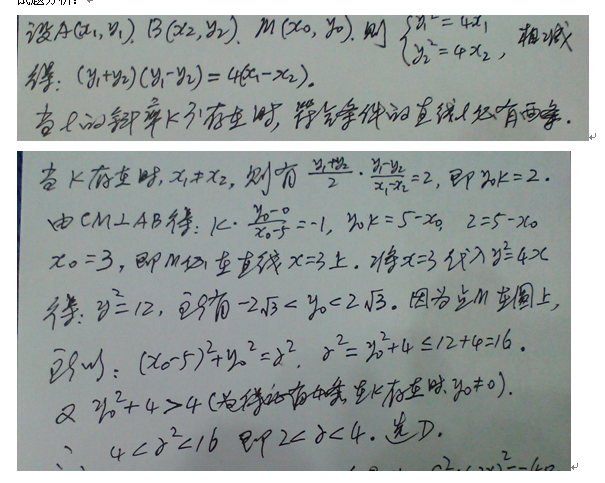 试题分析:
设A(x₁,y₁), B(x₂,y₂), M(x₀,y₀), 则 { y₁²=4x₁, y₂²=4x₂, 相减
得: (y₁+y₂)(y₁-y₂)=4(x₁-x₂).
当l的斜率K不存在时, 符合条件的直线l必有两条.
当K存在时, x₁≠x₂, 则有 (y₁+y₂)/2 · (y₁-y₂)/(x₁-x₂)=2, 即y₀K=2.
由CM⊥AB得: K·(y₀-0)/(x₀-5)=-1, y₀K=5-x₀, 2=5-x₀
x₀=3, 即M必在直线x=3上. 将x=3代入y²=4x
得: y²=12, 所有 -2√3<y₀<2√3. 因为点M在圆上,
所以: (x₀-5)²+y₀²=r², r²=y₀²+4≤12+4=16.
又 y₀²+4>4 (为保证有4条, 在K存在时, y₀≠0).
∴ 4<r²<16 即2<r<4. 选D.